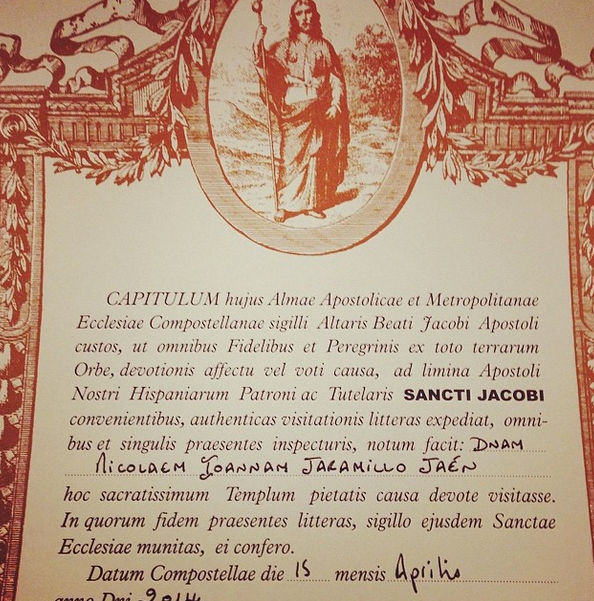 CAPITULUM hujus Almae Apostolicae et Metropolitanae
Ecclesiae Compostellanae sigilli Altaris Beati Jacobi Apostoli
custos, ut omnibus Fidelibus et Peregrinis ex toto terrarum
Orbe, devotionis affectu vel voti causa, ad limina Apostoli
Nostri Hispaniarum Patroni ac Tutelaris SANCTI JACOBI
convenientibus, authenticas visitationis litteras expediat, omni-
bus et singulis praesentes inspecturis, notum facit: DNAM
NICOLAEM JOANNAM JARAMILLO JAÉN
hoc sacratissimum Templum pietatis causa devote visitasse.
In quorum fidem praesentes litteras, sigillo ejusdem Sanctae
Ecclesiae munitas, ei confero.
Datum Compostellae die 15 mensis Aprilis
anno Dni 2014